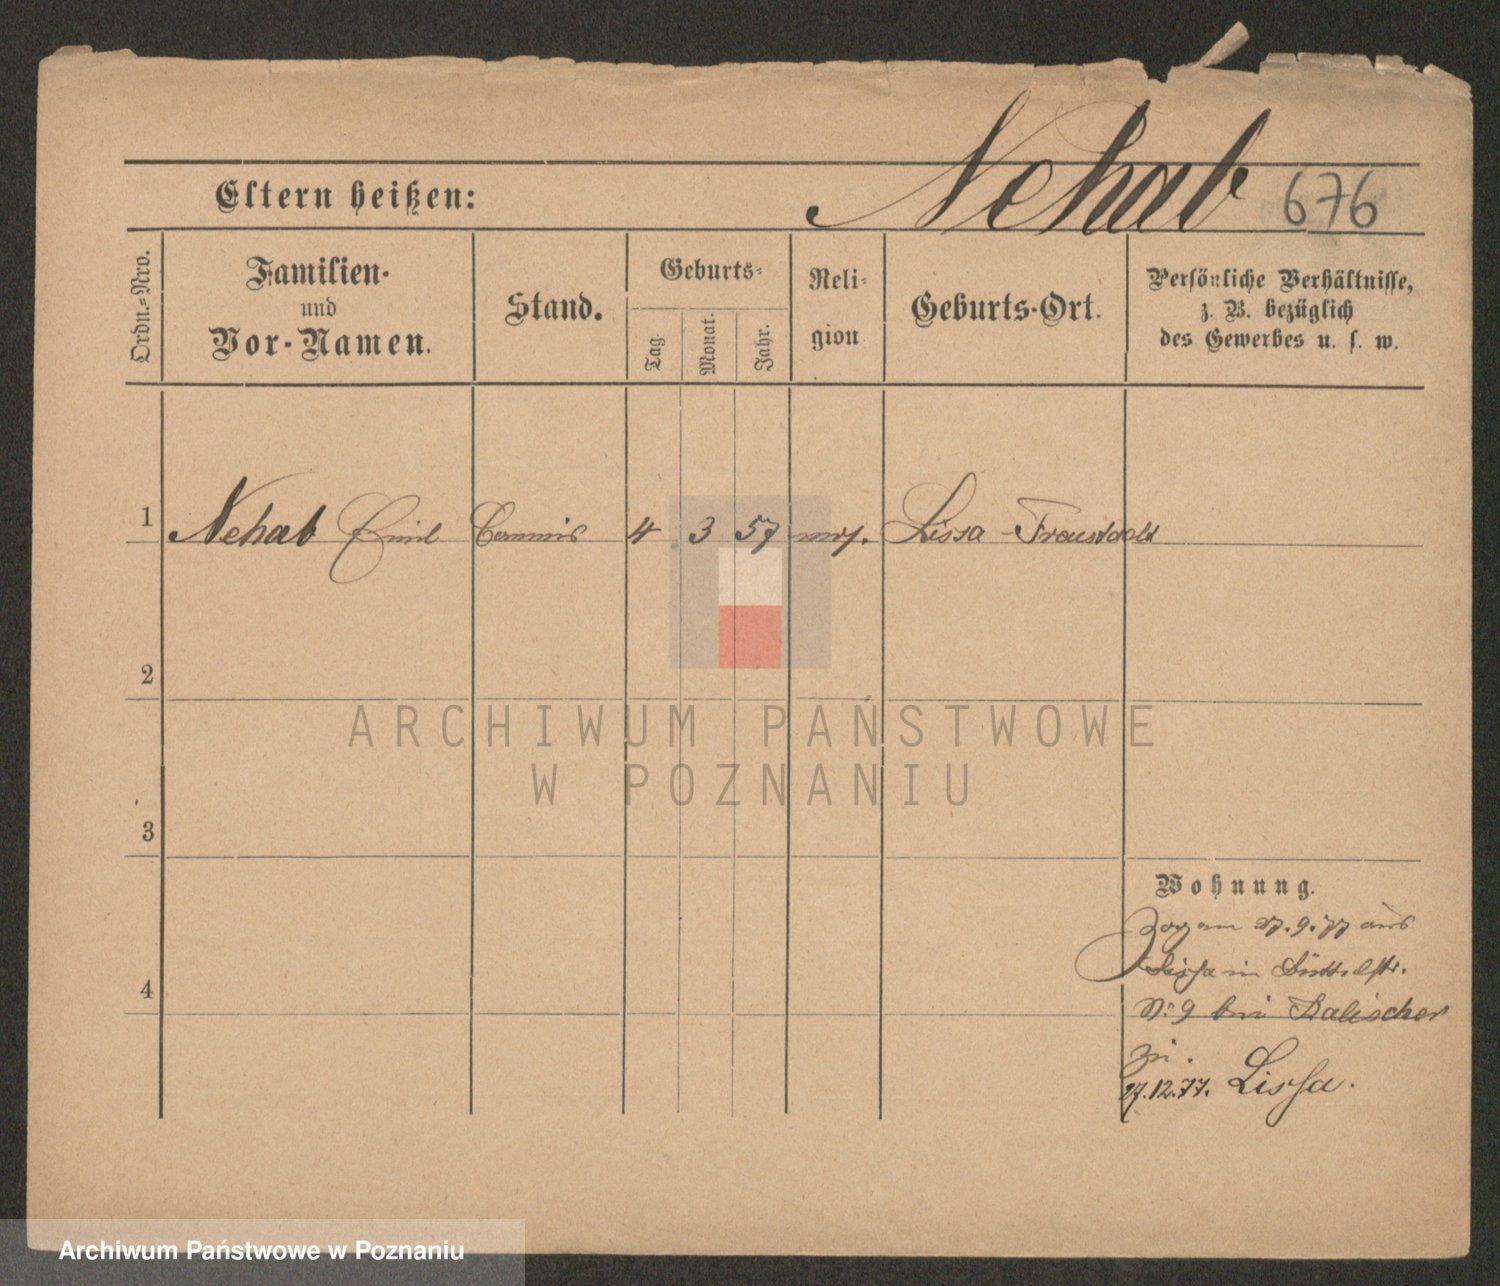 Nehab 676
Eltern heißen:
Ordn.=Nro.
Familien-
und
Vor-Namen.
Stand.
Geburts=
Tag.
Monat.
Jahr.
Reli=
gion
Geburts-Ort.
Persönliche Verhältnisse,
z. B. bezüglich
des Gewerbes u. s. w.
1 Nehab Emil Commis 4 3 57 mos. Lissa - Fraustadt
2
3
4
Wohnung.
27.9.77 aus
Lissa in
No 9 bei Kalischer
27.12.77. Lissa.
ARCHIWUM PAŃSTWOWE
W POZNANIU
Archiwum Państwowe w Poznaniu